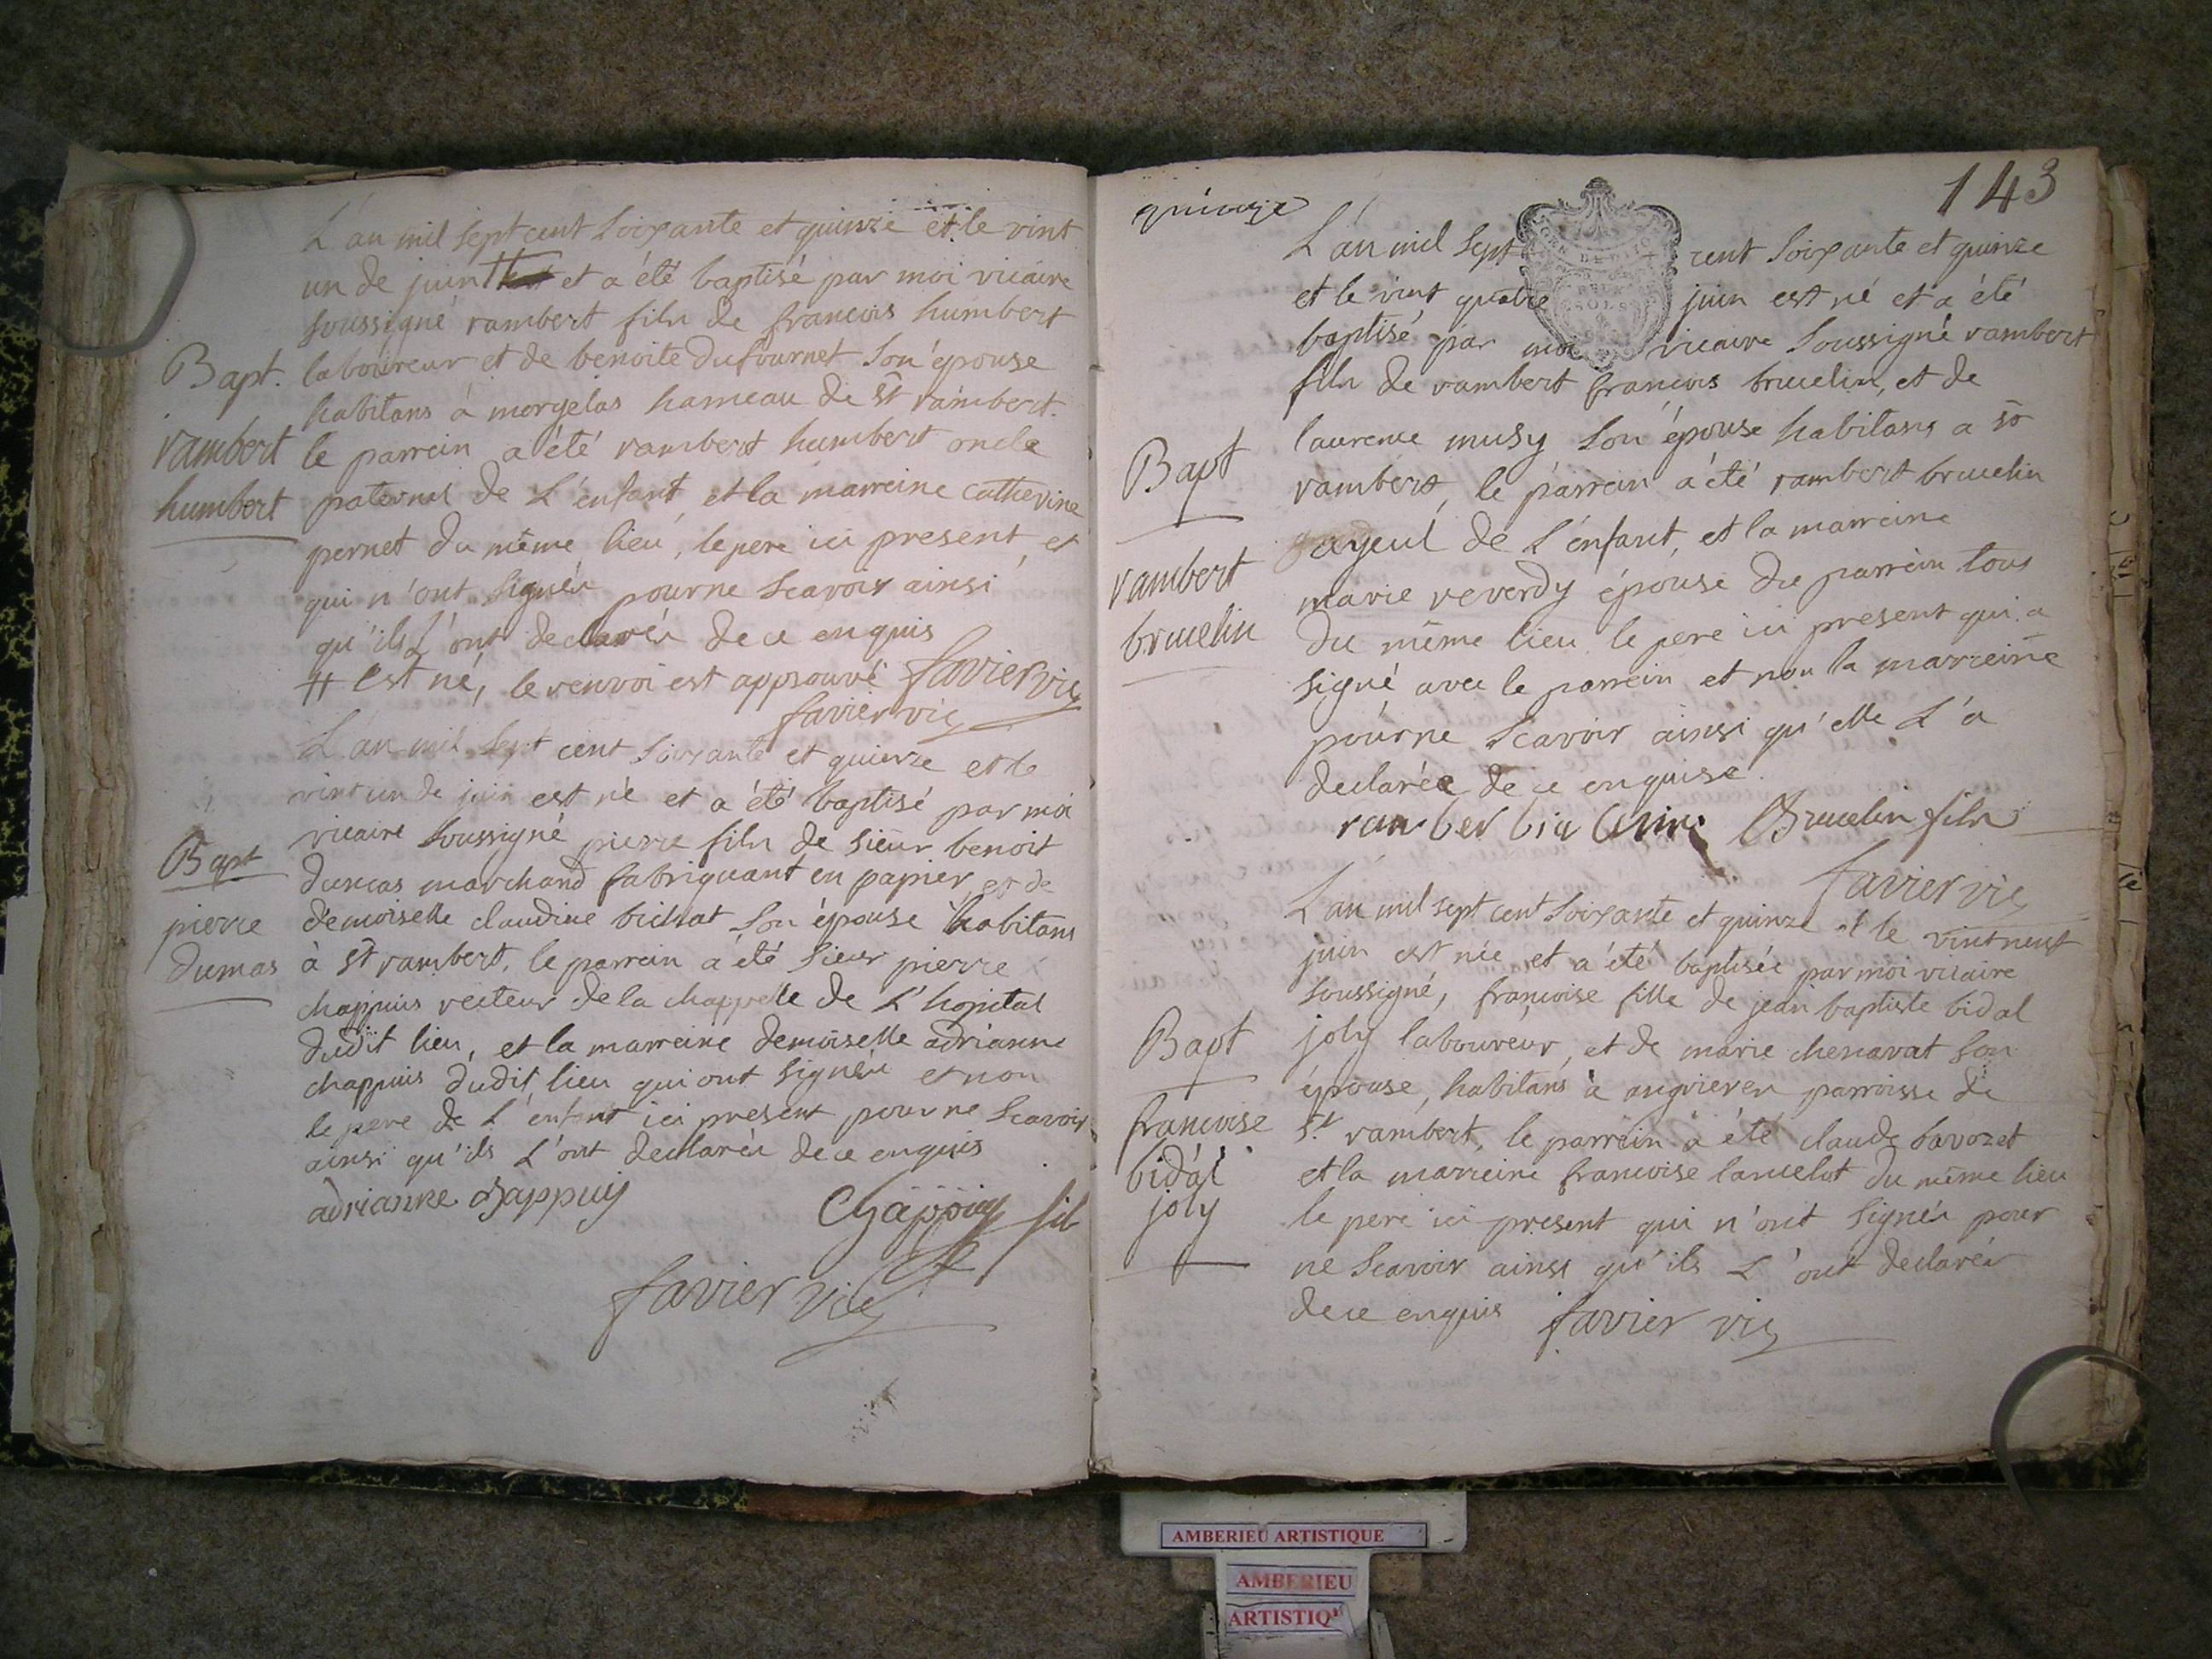 L'an mil sept cent soixante et quinze et le vint
un de juin # et a été baptisé par moi vicaire
soussigné rambert fils de francois humbert
Bapt. laboureur et de benoite dufournet son épouse
habitans à morgelas hameau de st rambert.
rambert le parrein a été rambert humbert oncle
humbert paternel de L'enfant, et la marreine catherine
pernet du même lieu, le pere ici present, et
qui n'ont signés pour ne scavoir ainsi
qu'ils L'ont declarés de ce enquis
# est né, le renvoi est approuvé favier vic
favier vic
L'an mil sept cent soixante et quinze et le
vint un de juin est né et a été baptisé par moi
vicaire soussigné pierre fils de sieur benoit
Bapt dumas marchand fabriquant en papier, et de
pierre demoiselle claudine bichat son épouse habitans
dumas à st rambert. le parrein a été sieur pierre
chappuis recteur de la chappelle de L'hopital
dudit lieu, et la marreine demoiselle adrianne
chappuis dudit lieu qui ont signés et non
le pere de L'enfant ici present pour ne scavoir
ainsi qu'ils L'ont declarés de ce enquis
adrianne chappuy Chappuy fil
favier vic
quinze 143
L'an mil sept cent soixante et quinze
et le vint quatre juin est né et a été
baptisé par moi vicaire soussigné rambert
fils de rambert francois bruelin, et de
laurence musy son épouse habitans a st
Bapt rambert, le parrein a été rambert bruelin
ayeul de L'enfant, et la marreine
rambert marie reverdy épouse du parrein tous
bruelin du même lieu le pere ici present qui a
signé avec le parrein et non la marreine
pour ne scavoir ainsi qu'elle L'a
declarée de ce enquise.
ramber Bruelin fils
favier vic
L'an mil sept cent soixante et quinze et le vint neuf
juin est née et a été baptisée par moi vicaire
soussigné, françoise fille de jean baptiste bidal
Bapt joly laboureur, et de marie chenavat son
épouse, habitans à angrieres parroisse de
francoise st rambert, le parrein a été claude bavozet
bidal et la marreine francoise lancelot du même lieu
joly le pere ici present qui n'ont signés pour
ne scavoir ainsi qu'ils L'ont declarés
de ce enquis favier vic
AMBERIEU ARTISTIQUE
AMBERIEU
ARTISTIQ